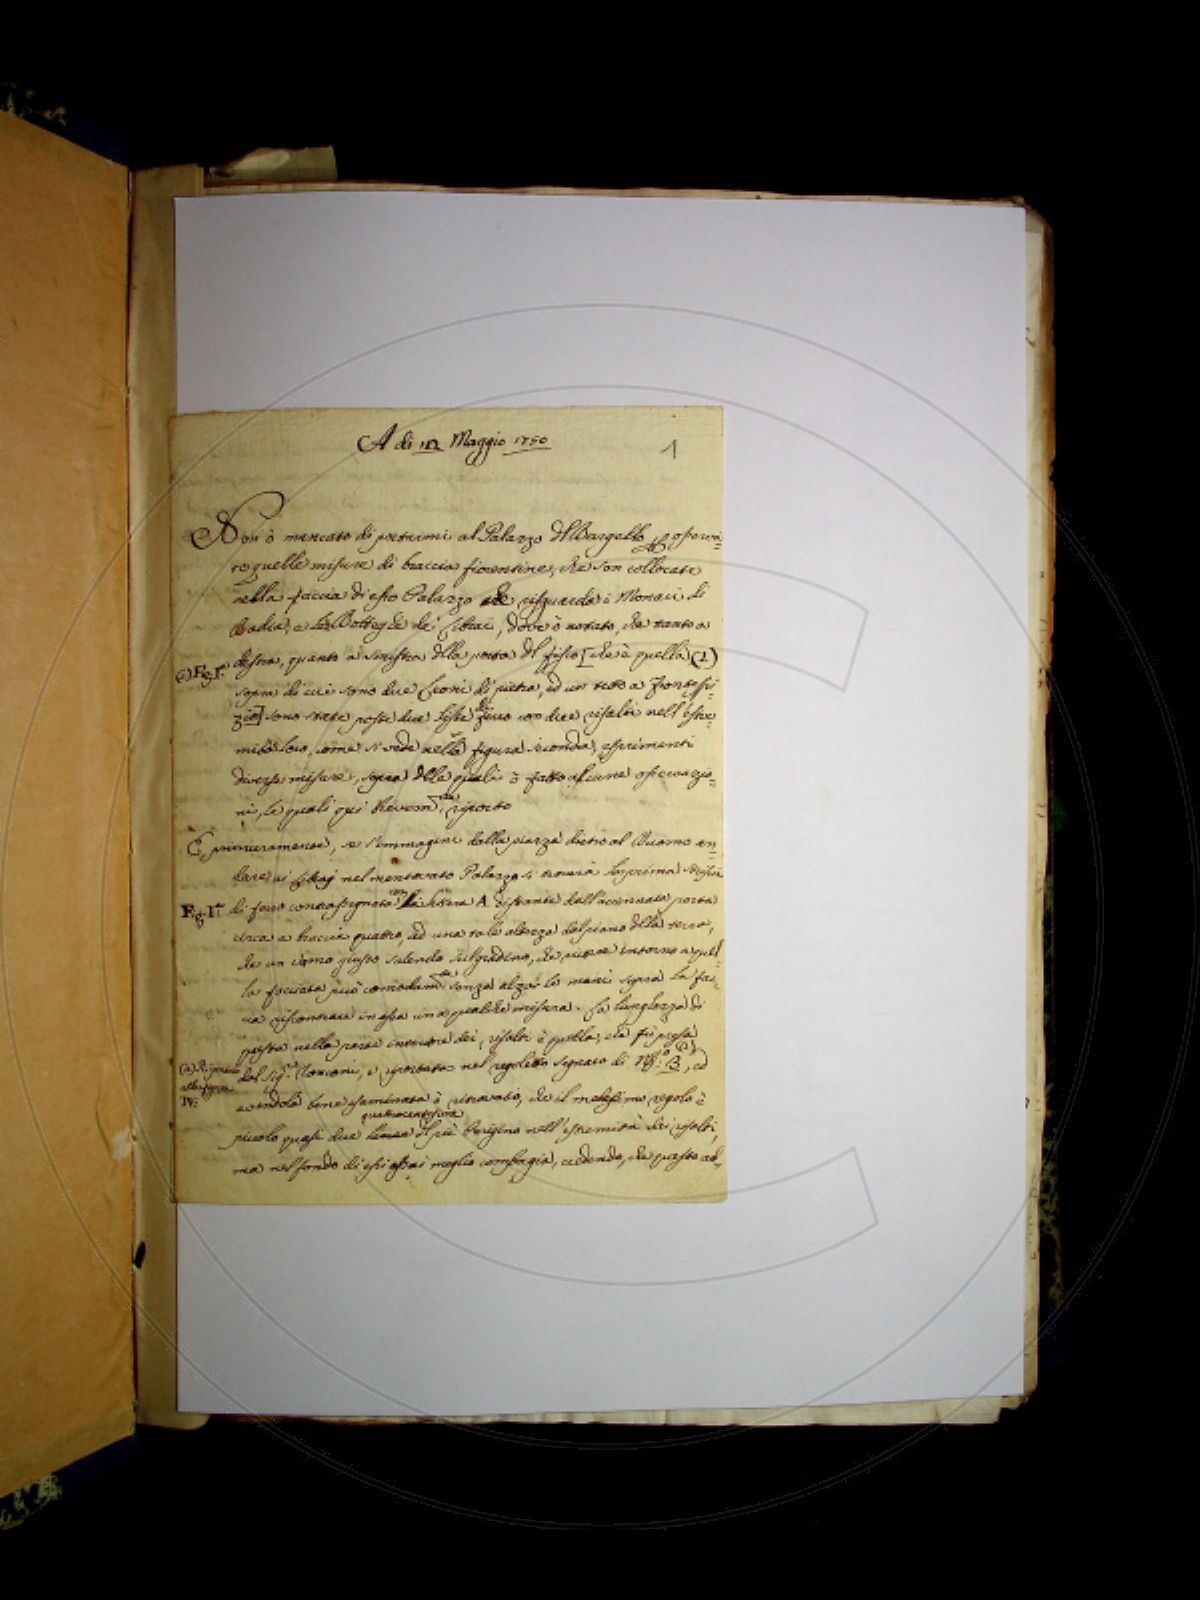 A di 12 Maggio 1750
1
Non ò mancato di portarmi al Palazzo del Bargello p osserva=
re quelle misure di braccia fiorentine, che son collocate
nella faccia di esso Palazzo che risguarda i Monaci di
Badia, e le Botteghe dei Librai, dove ò notato, che tanto a
destra, quanto a sinistra della porta del fisco [che è quella (1)
(1) Fig. I.ª
sopra di cui sono due Leoni di pietra, ed un tetto a frontespi=
zio] sono state poste due liste di ferro con due risalti nell'estre=
mità loro, come si vede nella figura seconda, esprimenti
diverse misure, sopra delle quali ò fatto alcune osservazio=
ni, le quali qui brevem.te riporto
E primieramente, se s'immagini dalla piazza dietro al Duomo an=
dare ai Librai nel mentovato Palazzo si troverà la prima misura
Fig. I.ª
di ferro contrassegnata con la lettera A distante dall'accennata porta
circa a braccia quattro, ed una tale altezza dal piano della terra,
che un uomo giusto salendo sul gradino, che ricorre intorno a quel=
la facciata può comodam.te senza alzar le mani sopra la fac=
cia riscontrare in essa una qualche misura. La lunghezza di
questa nella parte interiore dei risalti è quella, che fù presa
dal Sig.re , e riportata nel regoletto segnato di N.º B (2), ed
(2) Riportata
alla figura
IV.
avendola bene esaminata ò ritrovato, che il medesimo regolo è
quattrocentesima
piccolo quasi due del più Origino nell'estremità dei risalti,
ma nel fondo di essi assai meglio combagia, credendo, che questo ad=